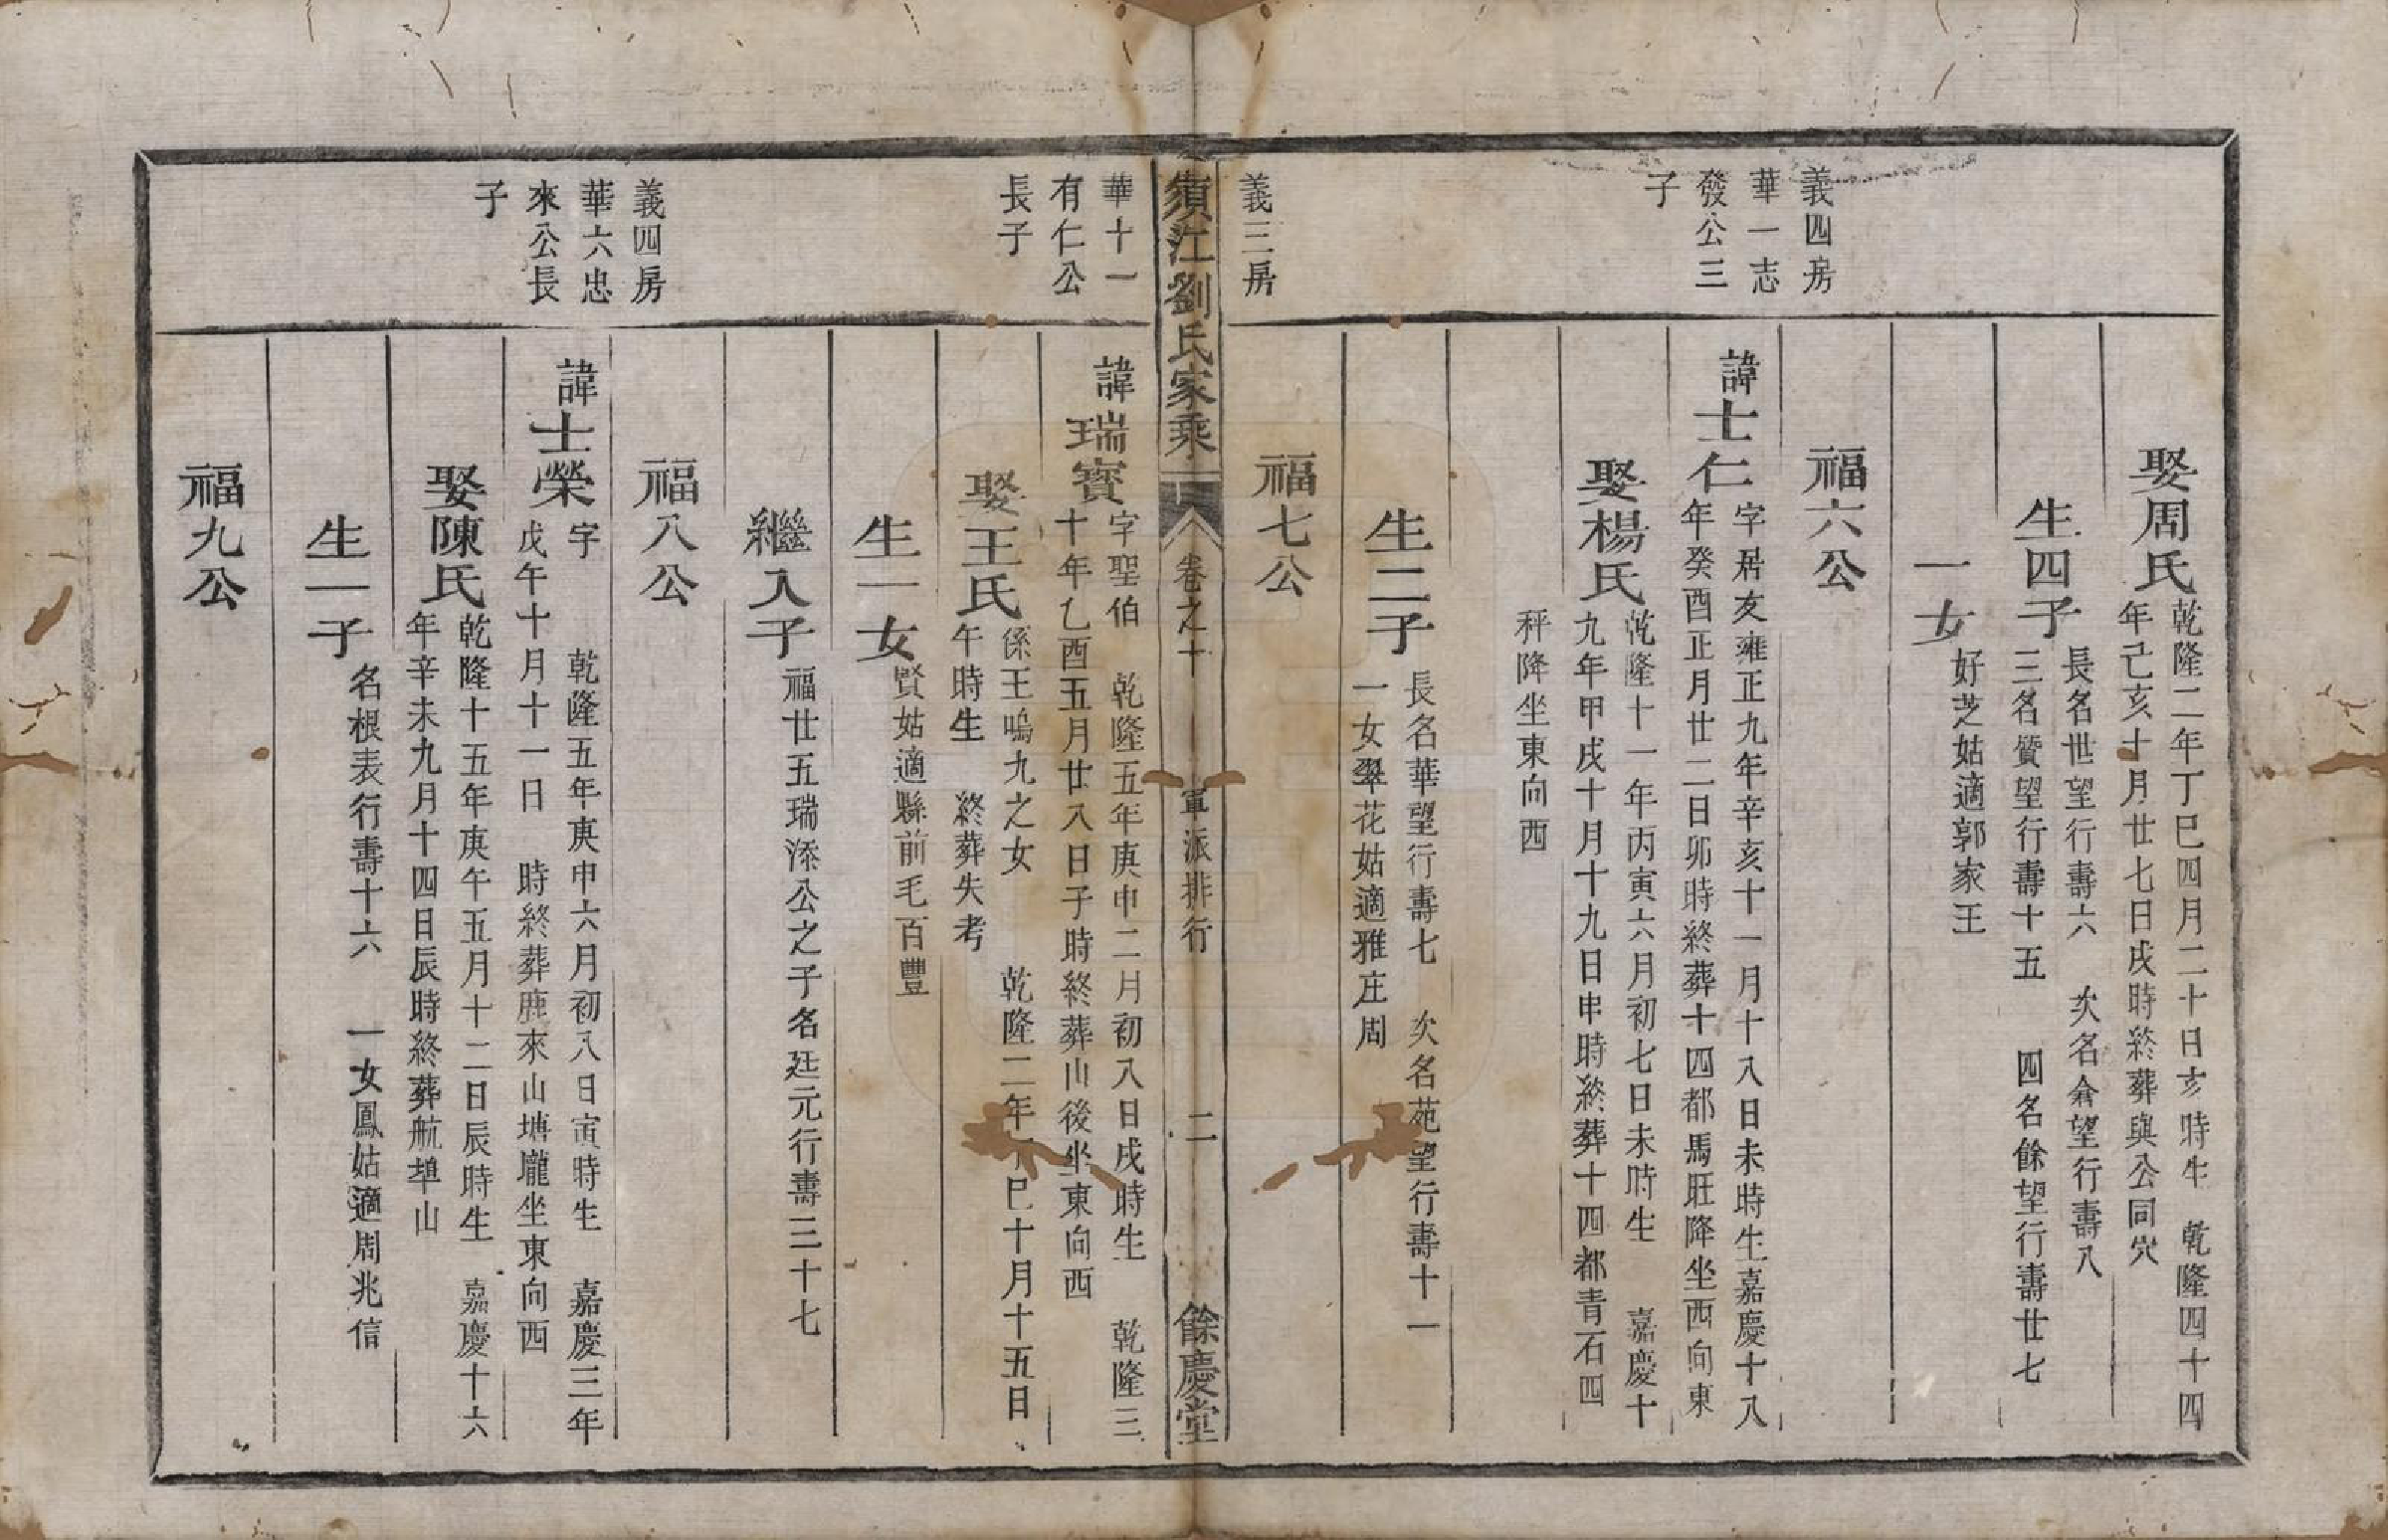 娶周氏
乾隆二年丁巳四月二十日亥時生 乾隆四十四
年己亥十月廿七日戌時終葬與公同穴
生四子
長名世望行壽六 次名侖望行壽八
三名贊望行壽十五 四名餘望行壽廿七
一女
好芝姑適郭家王
福六公
義四房
華一志
發公三
子
諱士仁
字居友雍正九年辛亥十一月十八日未時生嘉慶十八
年癸酉正月廿二日卯時終葬十四都馬旺降坐西向東
娶楊氏
乾隆十一年丙寅六月初七日未時生 嘉慶十
九年甲戌十月十九日申時終葬十四都青石四
秤降坐東向西
生二子
長名華望行壽七 次名苑望行壽十一
一女翠花姑適雅庄周
福七公
義三房
須江劉氏家乘
卷之十
軍派排行
二
餘慶堂
華十一
有仁公
長子
諱瑞寳
字聖伯 乾隆五年庚申二月初八日戌時生 乾隆三
十年乙酉五月廿八日子時終葬山後坐東向西
娶王氏
係王鳴九之女 乾隆二年丁巳十月十五日
午時生 終葬失考
生一女
賢姑適縣前毛百豐
繼入子
福廿五瑞添公之子名廷元行壽三十七
福八公
義四房
華六忠
來公長
子
諱士榮
字 乾隆五年庚申六月初八日寅時生 嘉慶三年
戊午十月十一日 時終葬鹿來山塘壠坐東向西
娶陳氏
乾隆十五年庚午五月十二日辰時生 嘉慶十六
年辛未九月十四日辰時終葬航埠山
生一子
名根表行壽十六 一女鳳姑適周兆信
福九公